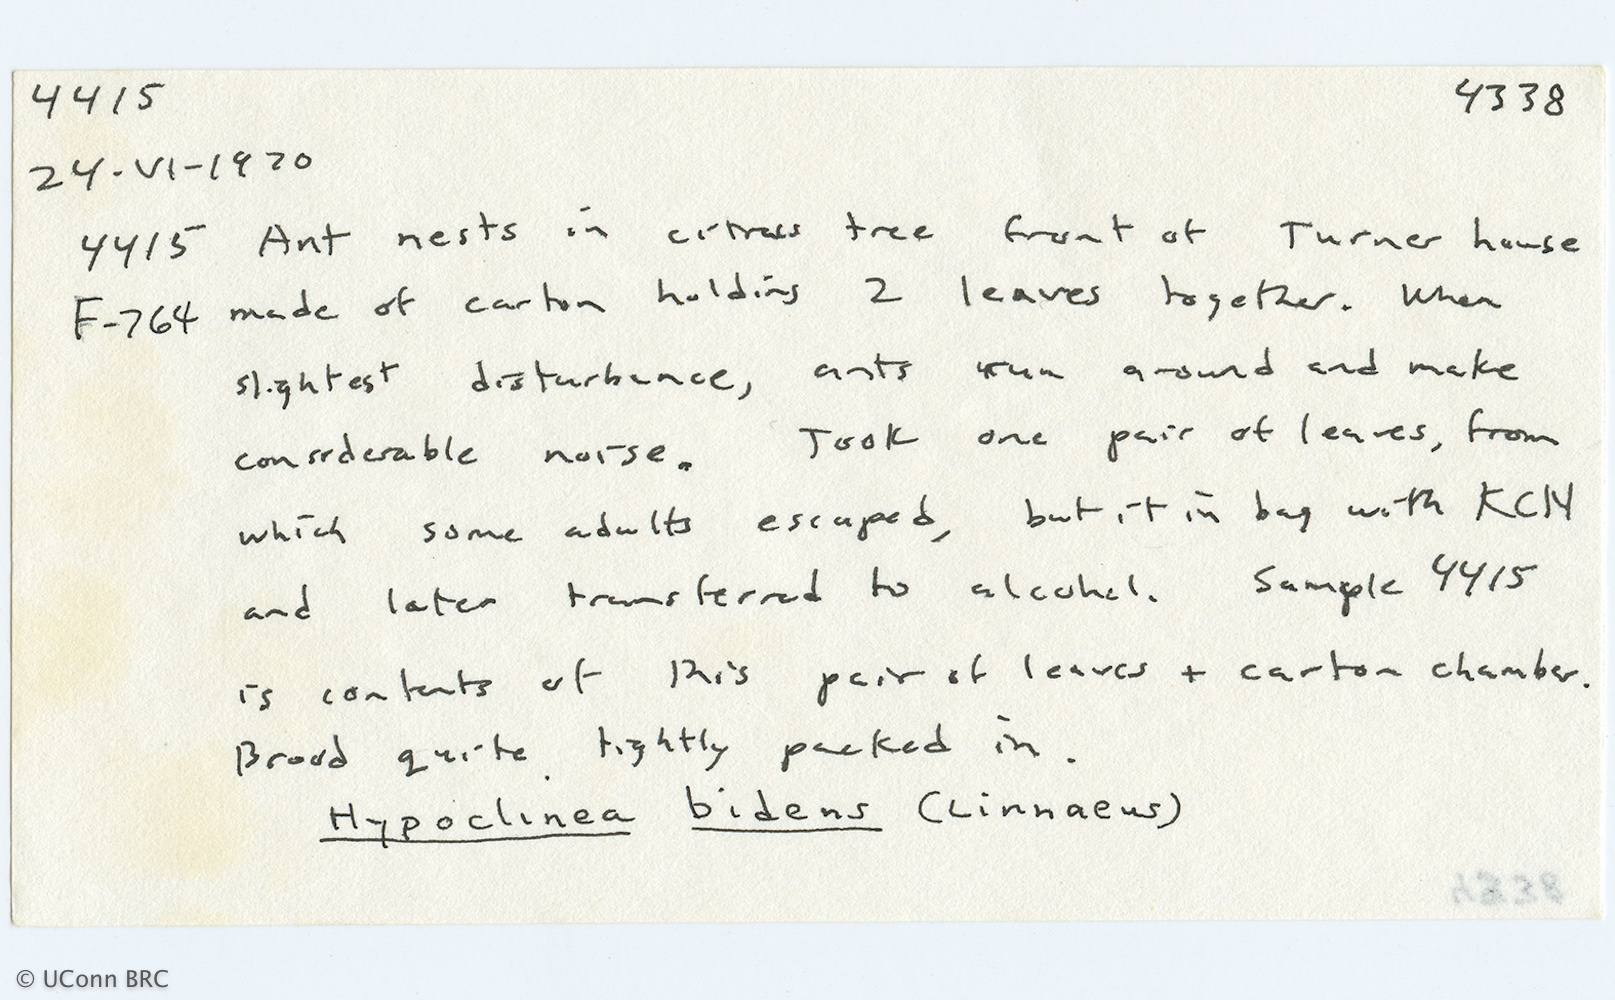 4415
4338
24-VI-1970
4415 Ant nests in citrus tree front of Turner house
F-764 made of carton holding 2 leaves together. When
slightest disturbance, ants run around and make
considerable noise. Took one pair of leaves, from
which some adults escaped, but it in bag with KCN
and later transferred to alcohol. Sample 4415
is contents of this pair of leaves + carton chamber.
Brood quite tightly packed in.
Hypoclinea bidens (Linnaeus)
4338
© UConn BRC